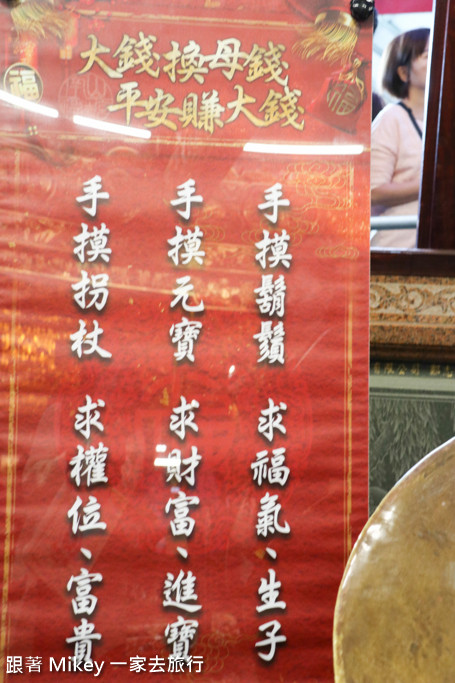 大錢換母錢
平安賺大錢
福
手摸鬍鬚 求福氣、生子
手摸元寶 求財富、進寶
手摸拐杖 求權位、富貴
跟著 Mikey 一家去旅行